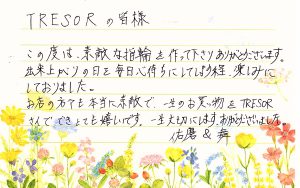 TRESORの皆様
この度は、素敵な指輪を作って下さりありがとうございます。
出来上がりの日を毎日心待ちにしてしまう程、楽しみに
しておりました。
お店の方々も本当に素敵で、一生のお買い物をTRESOR
さんでできとても嬉しいです。一生大切にします。ありがとうございました。
佑鷹&舞